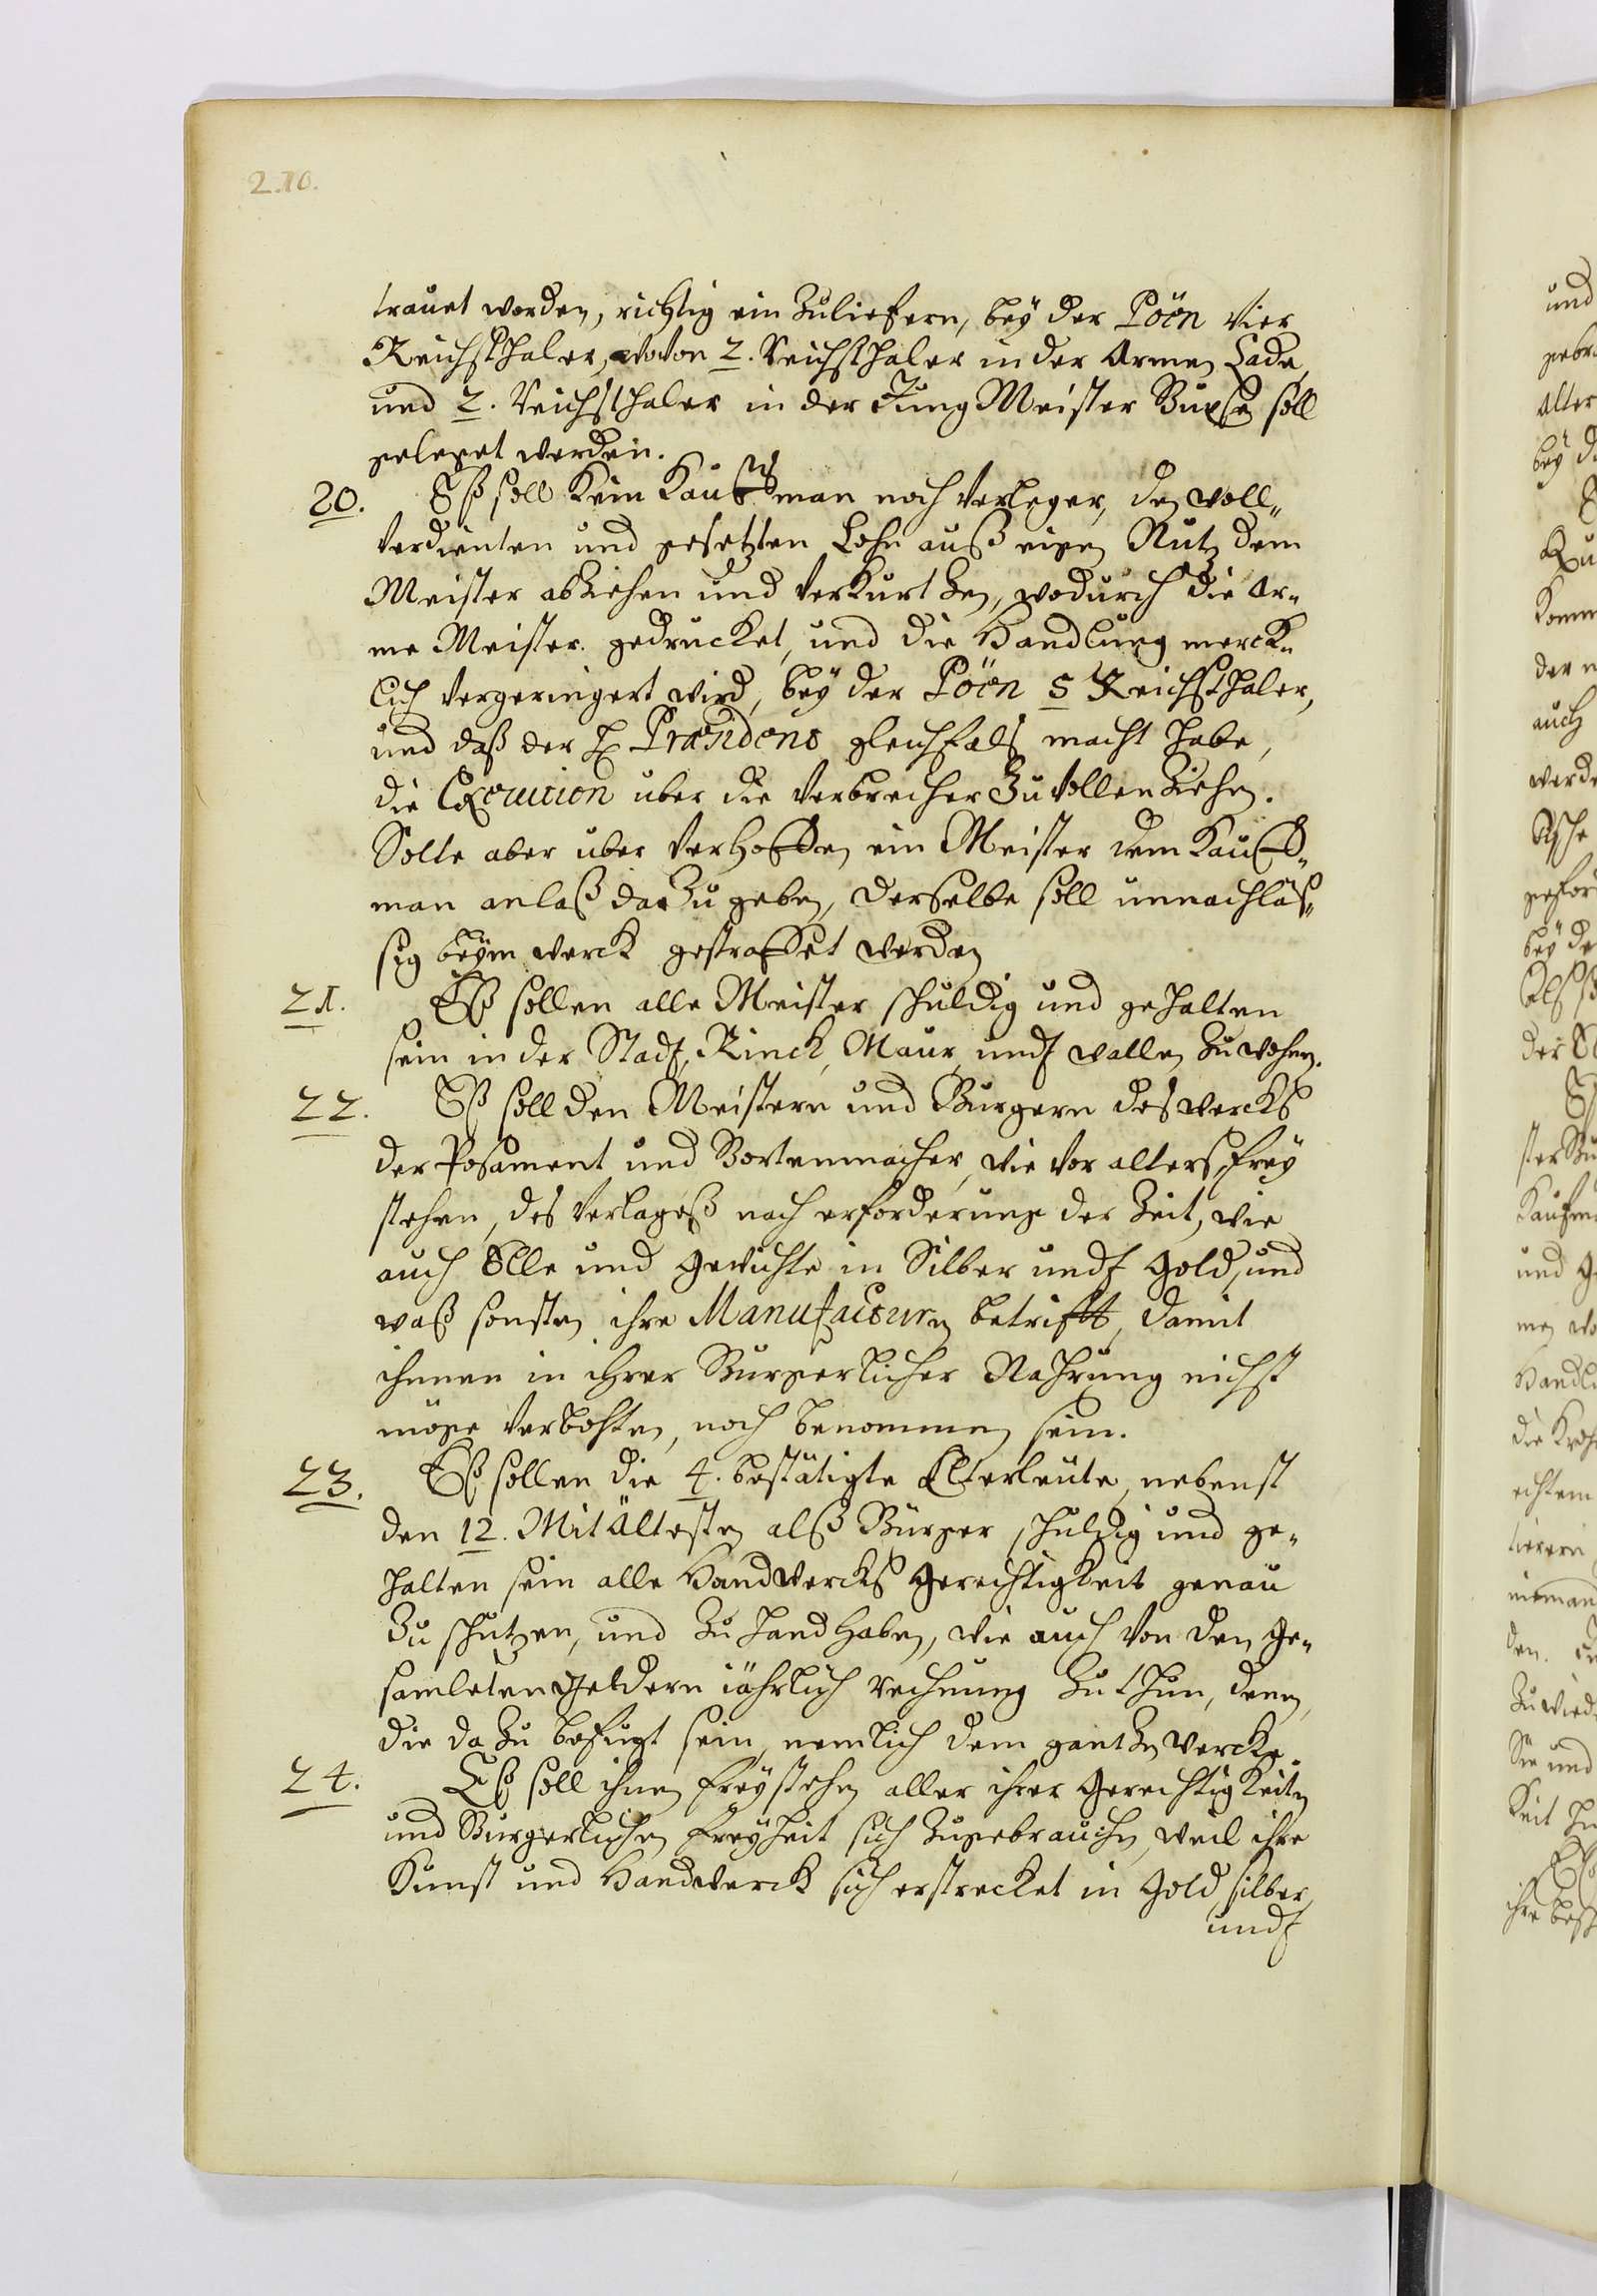 2.10.
trauet worden, richtig ein Zuliefern, beÿ der Pöen vier
Reichsthaler, wovon 2. Reichsthaler in der Armen Lade,
und 2. Reichsthaler in der Jung Meister Buxse soll
geleget werden.
20. Eß soll kein Kauffman noch Verleger, den woll„
verdienten und gesetzten Lohn auß eigen Nutz dem
Meister abziehen und verkurtzen, wodurch die Ar„
me Meister gedrucket, und die Handlung merck„
lich vergeringert wird, beÿ der Pöen 5 Reichsthaler,
und daß der H Præsidens gleichfals macht habe,
die Execution uber die Verbrecher Zu vollenziehen.
Solte aber uber verhoffen ein Meister dem Kauff„
man anlaß dazu geben, derselbe soll unnachläs„
sig beÿm werck gestraffet werden
21. Eß sollen alle Meister schuldig und gehalten
sein in der Stadt, Rinck, Maur undt wallen Zu wohnen.
22. Eß soll den Meistern und Burgern des wercks
der Posament und Bortenmacher, wie vor alters, freÿ
stehen, des Verlageß nach erforderung der Zeit, wie
auch Elle und Gewichte in Silber undt Gold, und
waß sonsten ihre Manufacturn betrifft, damit
ihnen in ihrer Burgerlicher Nahrung nichst
möge verbohten, noch benommen sein.
23. Eß sollen die 4. bestätigte Elterleute, nebenst
den 12. Mitältesten alß Bürger schuldig und ge„
halten sein alle Handwercks Gerechtigkeit genau
Zu schutzen, und Zu handhaben, wie auch von den ge„
samleten Geldern iährlich rechnung Zu thun, denen
die dazu befugt sein, nemlich dem gantzen wercke.
24. Eß soll ihnen freÿ stehen aller ihrer Gerechtigkeiten
und Burgerlichen freÿheit sich Zugebrauchen, weil ihre
Kunst und Handwerck sich erstrecket in Gold, silber,
undt